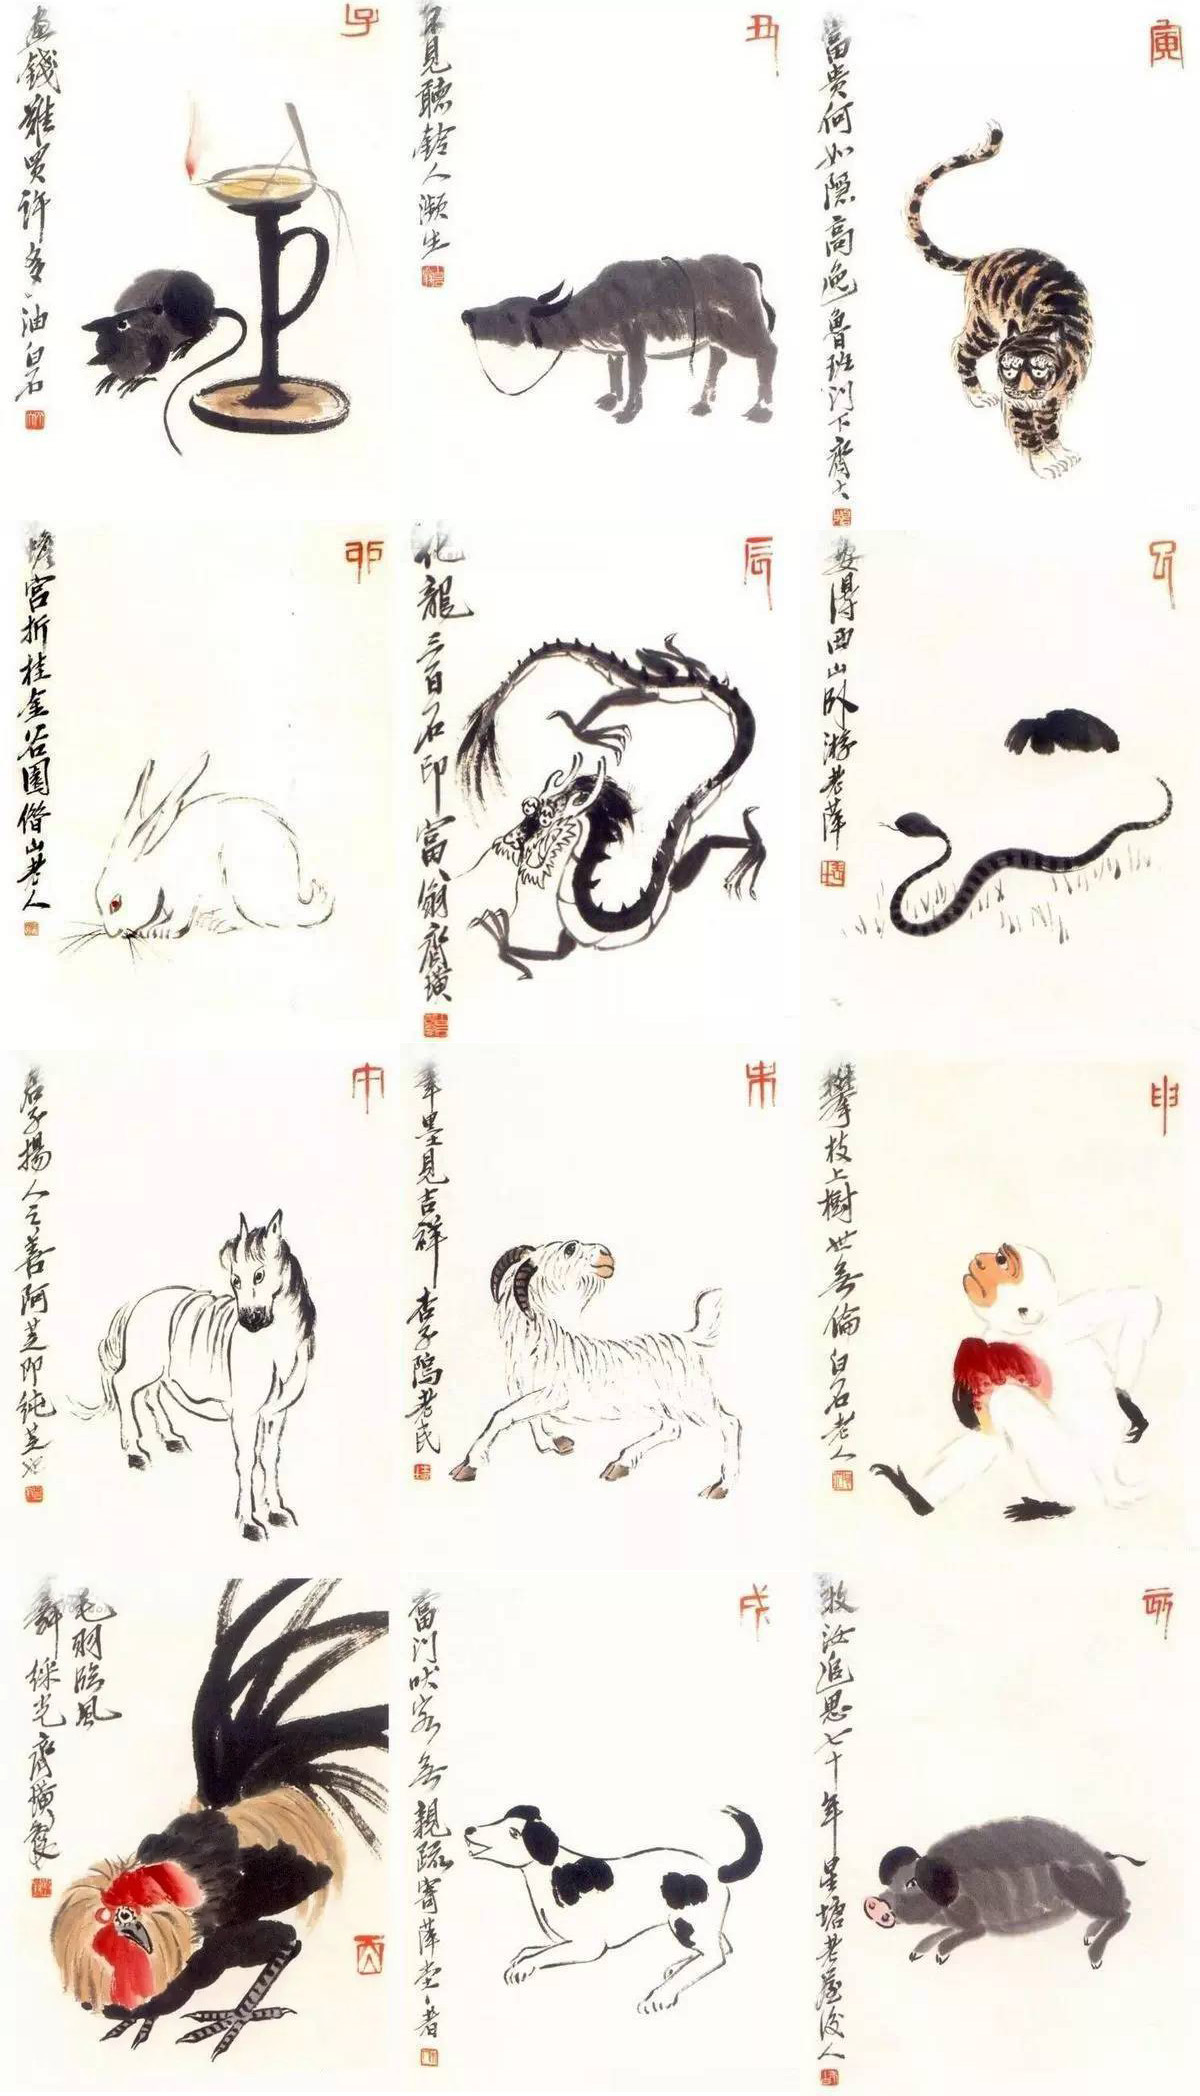 子
畫錢難買許多油白石
丑
不見聽鈴人瀕生
寅
富貴何如隱高 魯班門下齊大
卯
蟾宮折桂金谷園借山老人
辰
化龍三百石印富翁齊璜
巳
得西山臥游老萍
午
君子揚人之善阿芝即純芝也
未
筆墨見吉祥杏子隖老民
申
攀枝上樹世無倫白石老人
毛羽臨風
舞綵光齊璜
酉
戌
當門吠客無親疏寄萍堂老者
亥
牧汝追思七十年星塘老屋後人